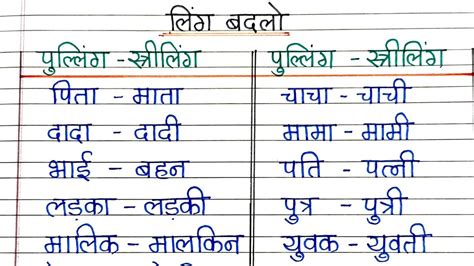 लिंग बदलो
पुल्लिंग - स्त्रीलिंग
पिता - माता
दादा - दादी
भाई - बहन
लड़का - लड़की
मालिक - मालकिन
पुल्लिंग - स्त्रीलिंग
चाचा - चाची
मामा - मामी
पति - पत्नी
पुत्र - पुत्री
युवक - युवती